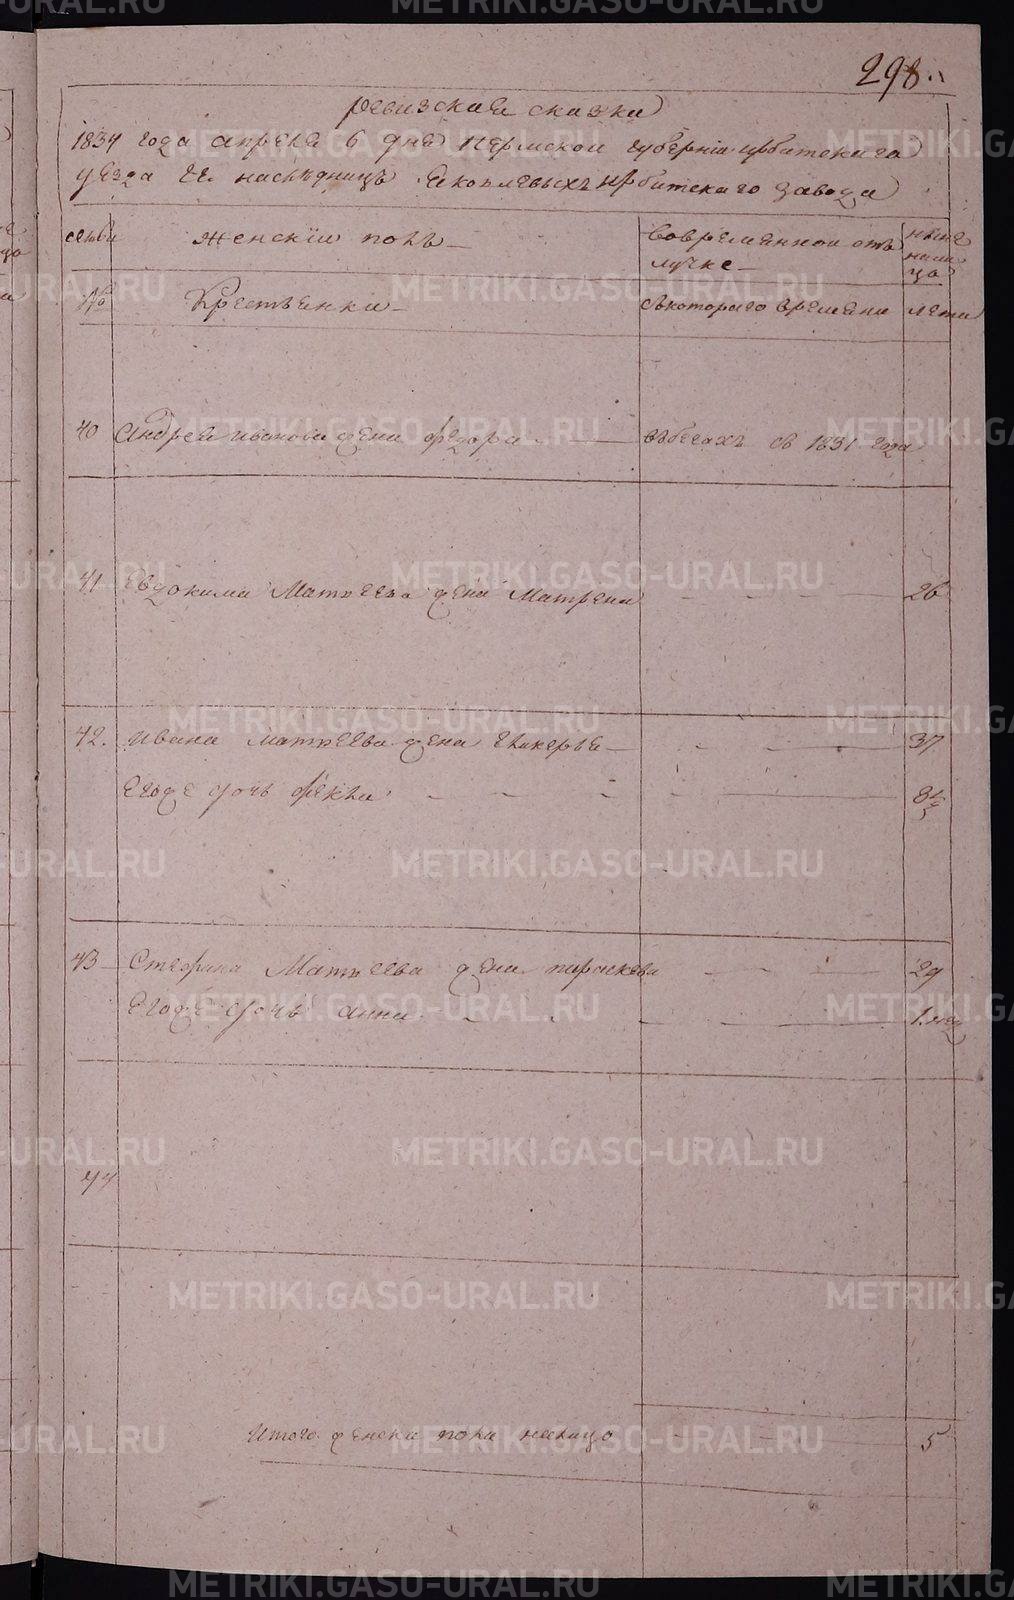 298.
ревизская сказка
1834 года апреля 6 дня пермской губернии ирбитскаго
уезда Г.г. наследницъ Яковлевыхъ ирбитскаго завода
семьи
женский полъ
Вовременной от
лучке
ныне
нали
цо
№
Крестьянки
съкотораго времяни
лета
40 Андрея иванова жена федора
вбегахъ съ 1831 года
41 Евдокима Матвеева жена Матрена 26
42. ивана матвеева жена гликерья 37
Егоже дочь фекла 8½
43 Стефана Матвеева жена параскева 29
Егоже дочь анна 1. мец
44
Итого женска пола налицо 5
METRIKI.GASO-URAL.RU